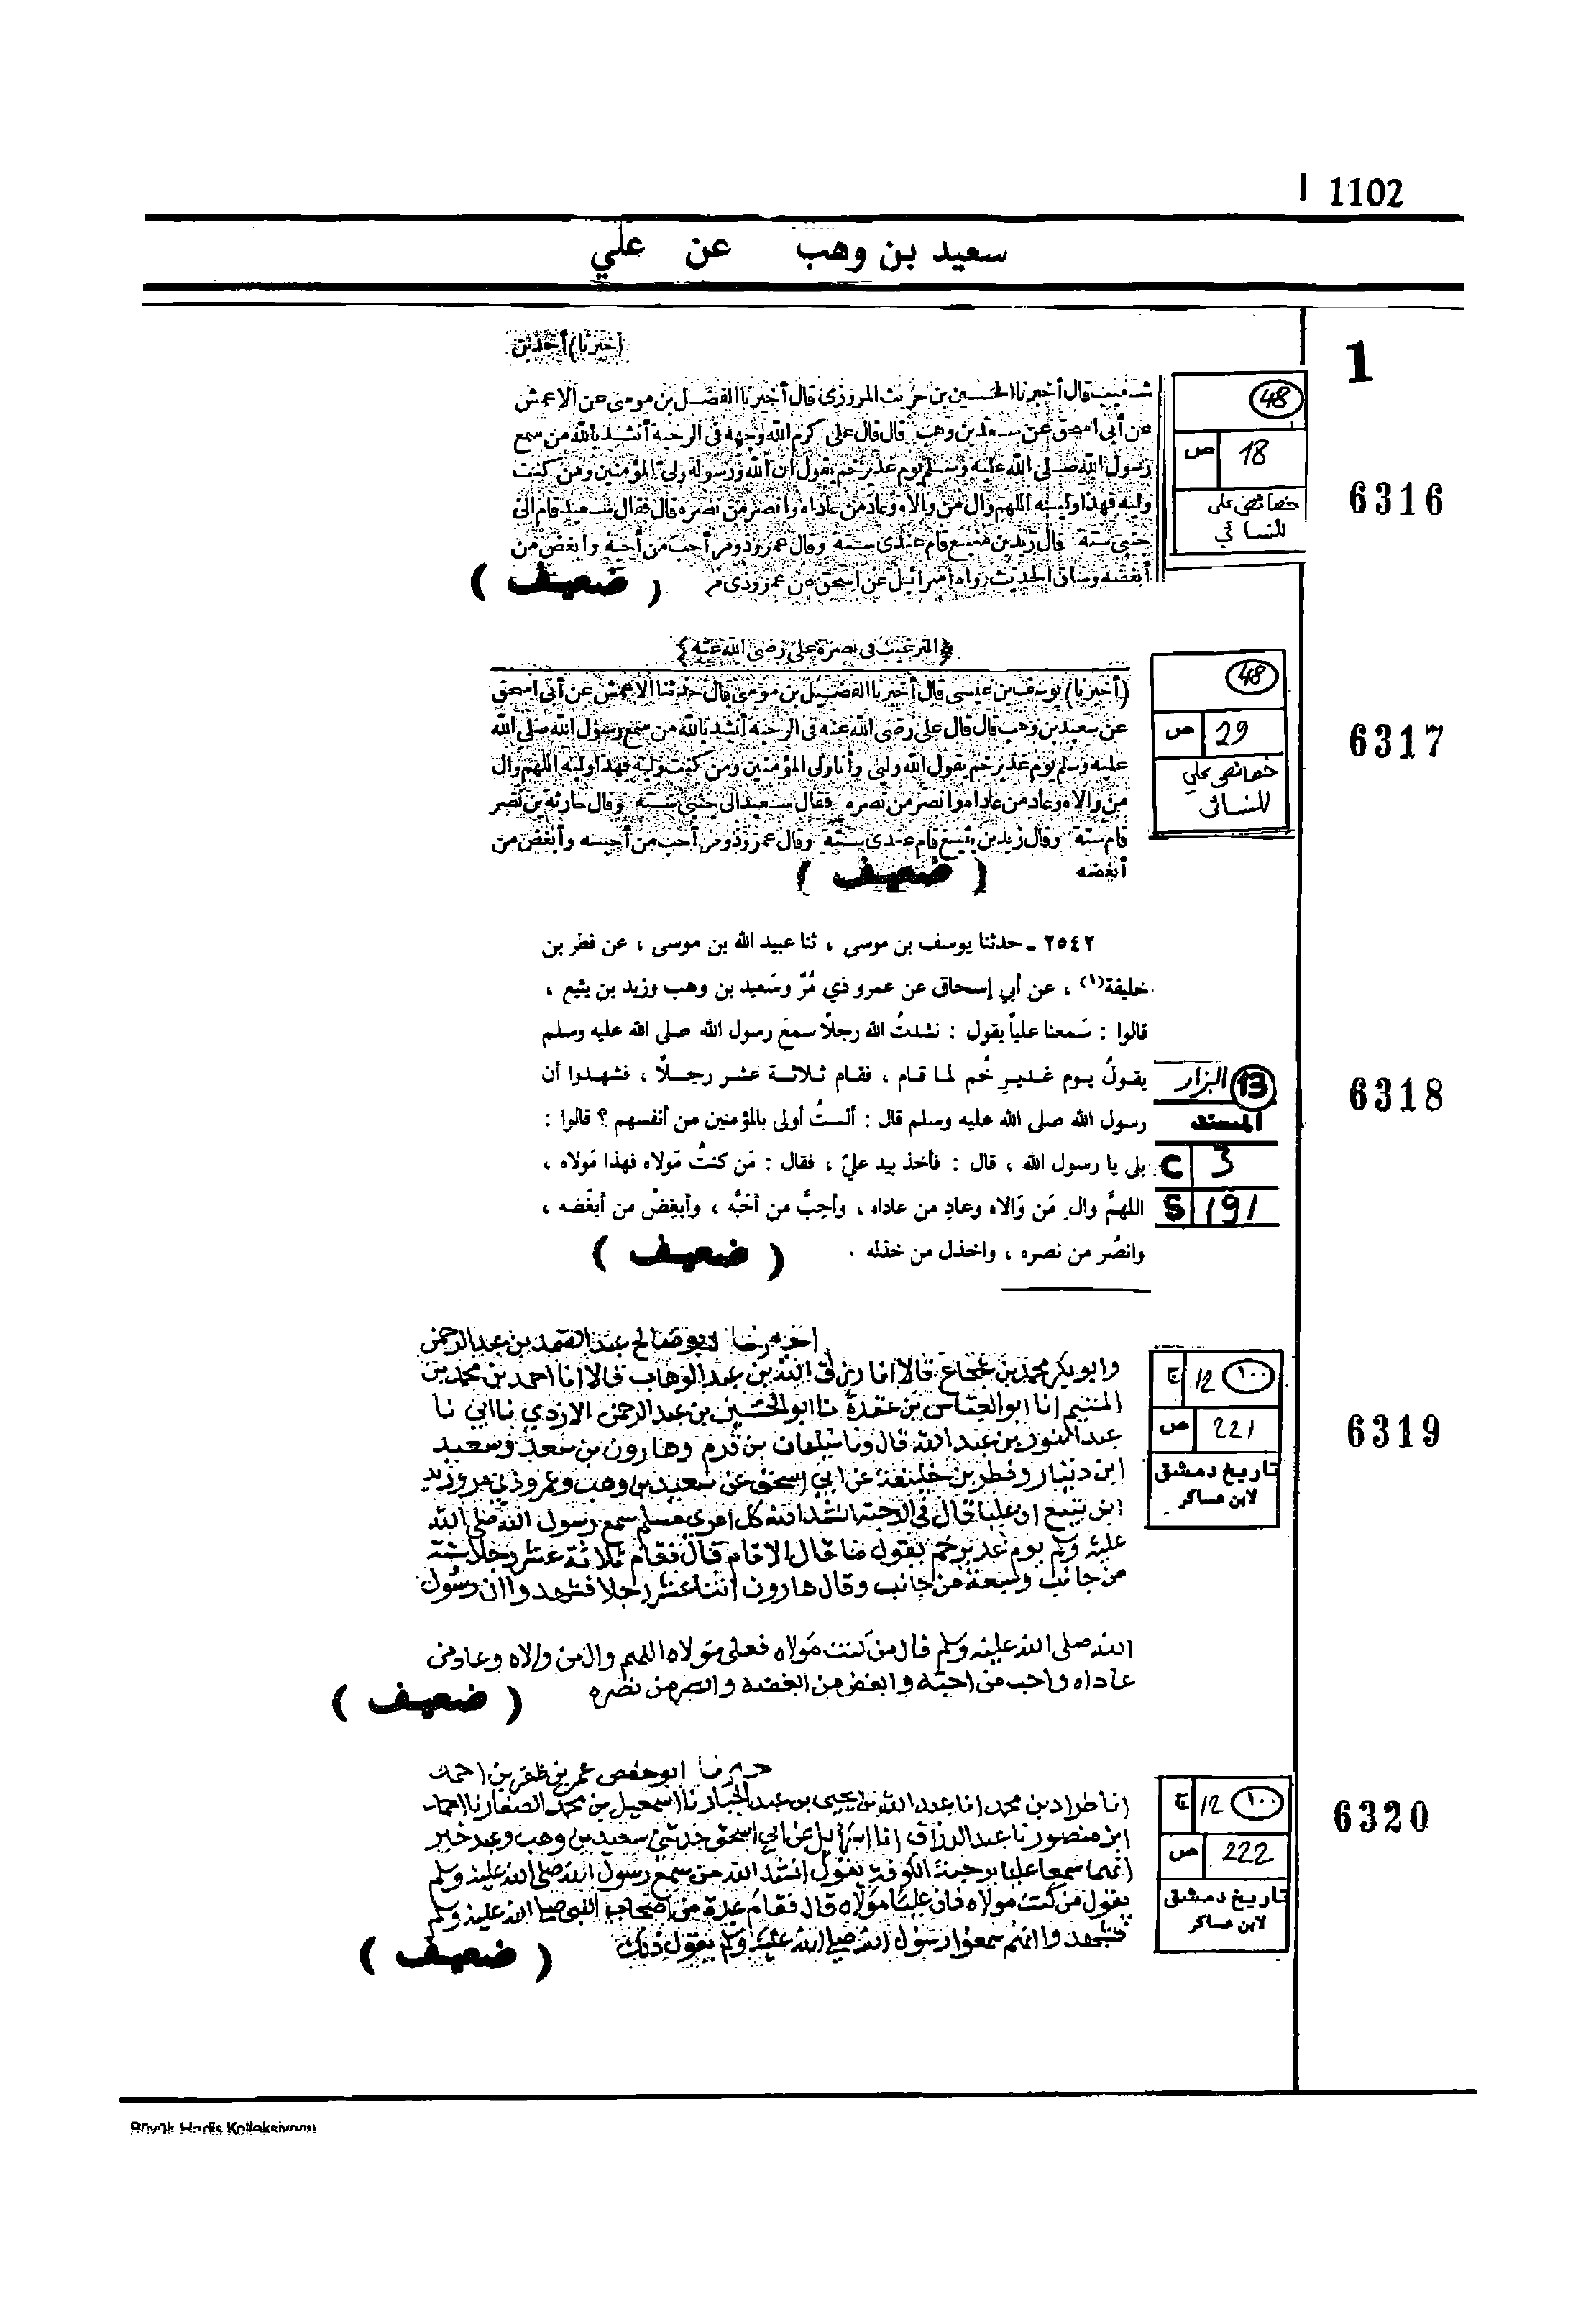 1102
سعيد بن وهب عن علي
1
(أخبرنا) أحمد بن
شعيب قال أخبرنا الحسين بن حريث المروزى قال أخبرنا الفضل بن موسى عن الاعمش
عن أبى اسحق عن سعيد بن وهب قال قال على كرم الله وجهه فى الرحبة أنشد بالله من سمع
رسول الله صلى الله عليه وسلم يوم غدير خم يقول ان الله ورسوله ولى المؤمنين ومن كنت
وليه فهذا وليه اللهم وال من والاه وعاد من عاداه وانصر من نصره قال فقال سعيد قام الى
جنبى ستة قال زيد بن منيع قام عندى ستة وقال عمرو ذو مر أحب من أحبه وابغض من
أبغضه وساق الحديث رواه اسرائيل عن اسحق عن عمرو ذى مر
( ضعيف )
48
ص 18
خصائص علي
للنسائي
6316
﴿الترغيب فى نصرة على رضى الله عنه﴾
(أخبرنا) يوسف بن عيسى قال أخبرنا الفضيل بن موسى قال حدثنا الاعمش عن أبى اسحق
عن سعيد بن وهب قال قال على رضى الله عنه فى الرحبة أنشد بالله من سمع رسول الله صلى الله
عليه وسلم يوم غدير خم يقول الله وليى وأنا ولى المؤمنين ومن كنت وليه فهذا وليه اللهم وال
من والاه وعاد من عاداه وانصر من نصره فقال سعيد الى جنبى ستة وقال حارثة بن نصر
قام ستة وقال زيد بن يثيع قام عندى ستة وقال عمرو ذو مر أحب من أحبه وأبغض من
أبغضه
( ضعيف )
48
ص 29
خصائص علي
للنسائي
6317
٢٥٤٢ ـ حدثنا يوسف بن موسى ، ثنا عبيد الله بن موسى ، عن فطر بن
خليفة(١) ، عن أبي إسحاق عن عمرو ذي مُرّ وسَعيد بن وهب وزيد بن يثيع ،
قالوا : سَمعنا علياً يقول : نشدتُ الله رجلًا سمعَ رسول الله صلى الله عليه وسلم
يقولُ يوم غديرِ خُم لما قام ، فقام ثلاثة عشر رجلًا ، فشهدوا أن
رسول الله صلى الله عليه وسلم قال : ألستُ أولى بالمؤمنين من أنفسهم ؟ قالوا :
بلى يا رسول الله ، قال : فأخذ بيد عليّ ، فقال : مَن كنتُ مَولاه فهذا مَولاه ،
اللهمَّ والِ مَن وَالاه وعادِ من عاداه ، وأحِبَّ من أحَبَّه ، وأبغِضْ من أبغَضه ،
وانصُر من نصره ، واخذل من خذله .
( ضعيف )
13 البزار
المسند
C 3
S 191
6318
اخبرنا ابو صالح عبد الصمد بن عبد الرحمن
وابو بكر محمد بن شجاع قالا انا رزق الله بن عبد الوهاب قالا انا احمد بن محمد بن
المتيم انا ابو العباس بن عقدة نا ابو الحسين بن عبد الرحمن الازدي نا ابي نا
عبد النور بن عبد الله قال ونا سليمان بن قرم وهارون بن سعد وسعيد
ابن دينار وفطر بن خليفة عن ابي اسحق عن سعيد بن وهب وعمرو ذي مر وزيد
ابن يثيع ان عليا قال في الرحبة انشد الله كل امرئ مسلم سمع رسول الله صلى الله
عليه وسلم يوم غدير خم يقول ما قال الا قام قال فقام ثلاثة عشر رجلا ستة
من جانب وسبعة من جانب وقال هارون اثنا عشر رجلا فشهدوا ان رسول
الله صلى الله عليه وسلم قال من كنت مولاه فعلي مولاه اللهم وال من والاه وعاد من
عاداه واحب من احبه وابغض من ابغضه وانصر من نصره
( ضعيف )
١٠٠ 12 ج
ص 221
تاريخ دمشق
لابن عساكر
6319
ابو حفص عمر بن ظفر بن احمد
انا طراد بن محمد انا عبد الله بن يحيى بن عبد الجبار نا اسمعيل بن محمد الصفار نا احمد
ابن منصور نا عبد الرزاق انا اسرائيل عن ابي اسحق حدثني سعيد بن وهب وعبد خير
انهما سمعا عليا برحبة الكوفة يقول انشد الله من سمع رسول الله صلى الله عليه وسلم
يقول من كنت مولاه فان عليا مولاه قال فقام عدة من اصحاب النبي صلى الله عليه وسلم
فشهدوا انهم سمعوا رسول الله صلى الله عليه وسلم يقول ذلك
( ضعيف )
١٠٠ 12 ج
ص 222
تاريخ دمشق
لابن عساكر
6320
Büyük Hadis Kolleksiyonu